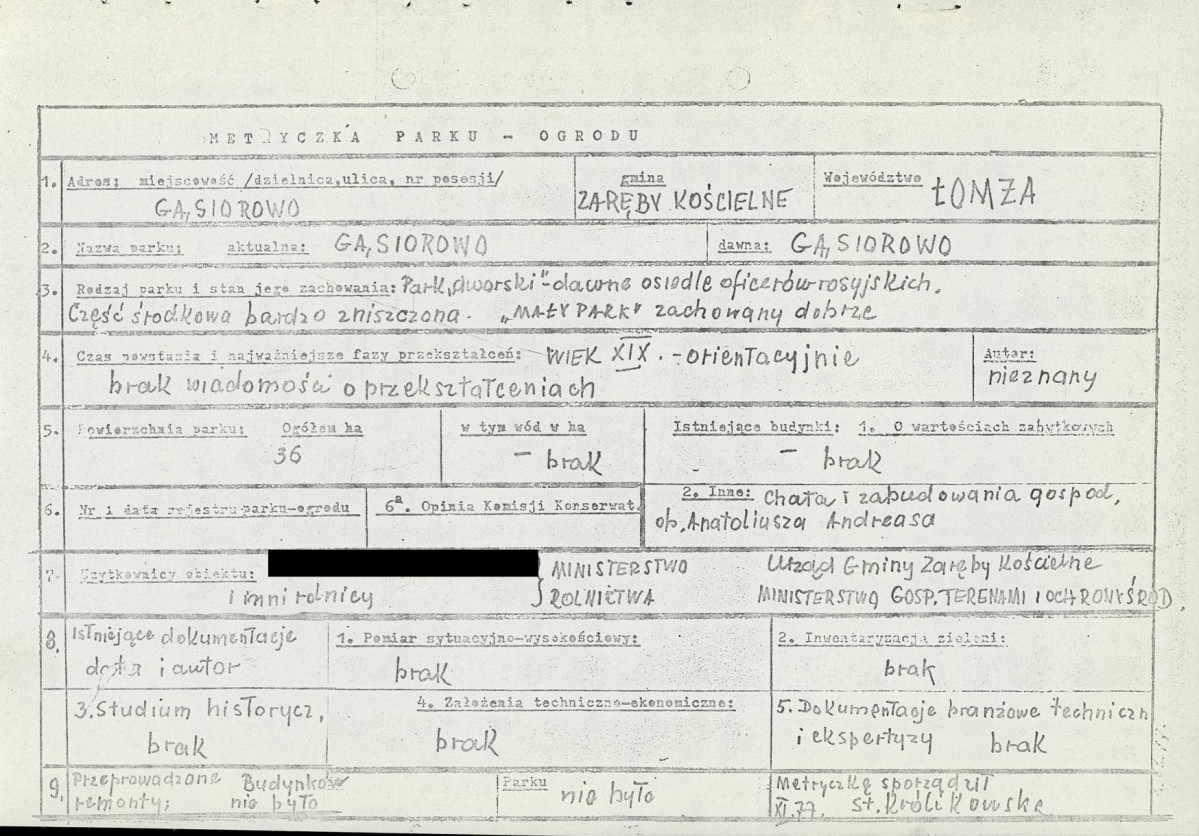 METRYCZKA PARKU - OGRODU
1. Adres; miejscowość /dzielnica, ulica, nr posesji/
GĄSIOROWO
gmina
ZARĘBY KOŚCIELNE
Województwo ŁOMŻA
2. Nazwa parku; aktualna: GĄSIOROWO
dawna: GĄSIOROWO
3. Rodzaj parku i stan jego zachowania: Park „dworski" - dawne osiedle oficerów rosyjskich.
Część środkowa bardzo zniszczona. „MAŁY PARK" zachowany dobrze
4. Czas powstania i najważniejsze fazy przekształceń: WIEK XIX. - orientacyjnie
brak wiadomości o przekształceniach
Autor:
nieznany
5. Powierzchnia parku: Ogółem ha
36
w tym wód w ha
- brak
Istniejące budynki: 1. O wartościach zabytkowych
- brak
2. Inne: Chata i zabudowania gospod,
ob, Anatoliusza Andreasa
6. Nr i data rejestru parku-ogrodu
6a. Opinia Komisji Konserwat.
7. Użytkownicy obiektu:
i inni rolnicy
} MINISTERSTWO
ROLNICTWA
Urząd Gminy Zaręby Kościelne
MINISTERSTWO GOSP. TERENAMI I OCHRONY ŚROD.
8. Istniejące dokumentacje
data i autor
1. Pomiar sytuacyjno-wysokościowy:
brak
2. Inwentaryzacja zieleni:
brak
3. Studium historycz,
brak
4. Założenia techniczno-ekonomiczne:
brak
5. Dokumentacje branżowe techniczn
i ekspertyzy brak
9. Przeprowadzone Budynków
remonty; nie było
Parku
nie było
Metryczkę sporządził
XI.77. St. Królikowska